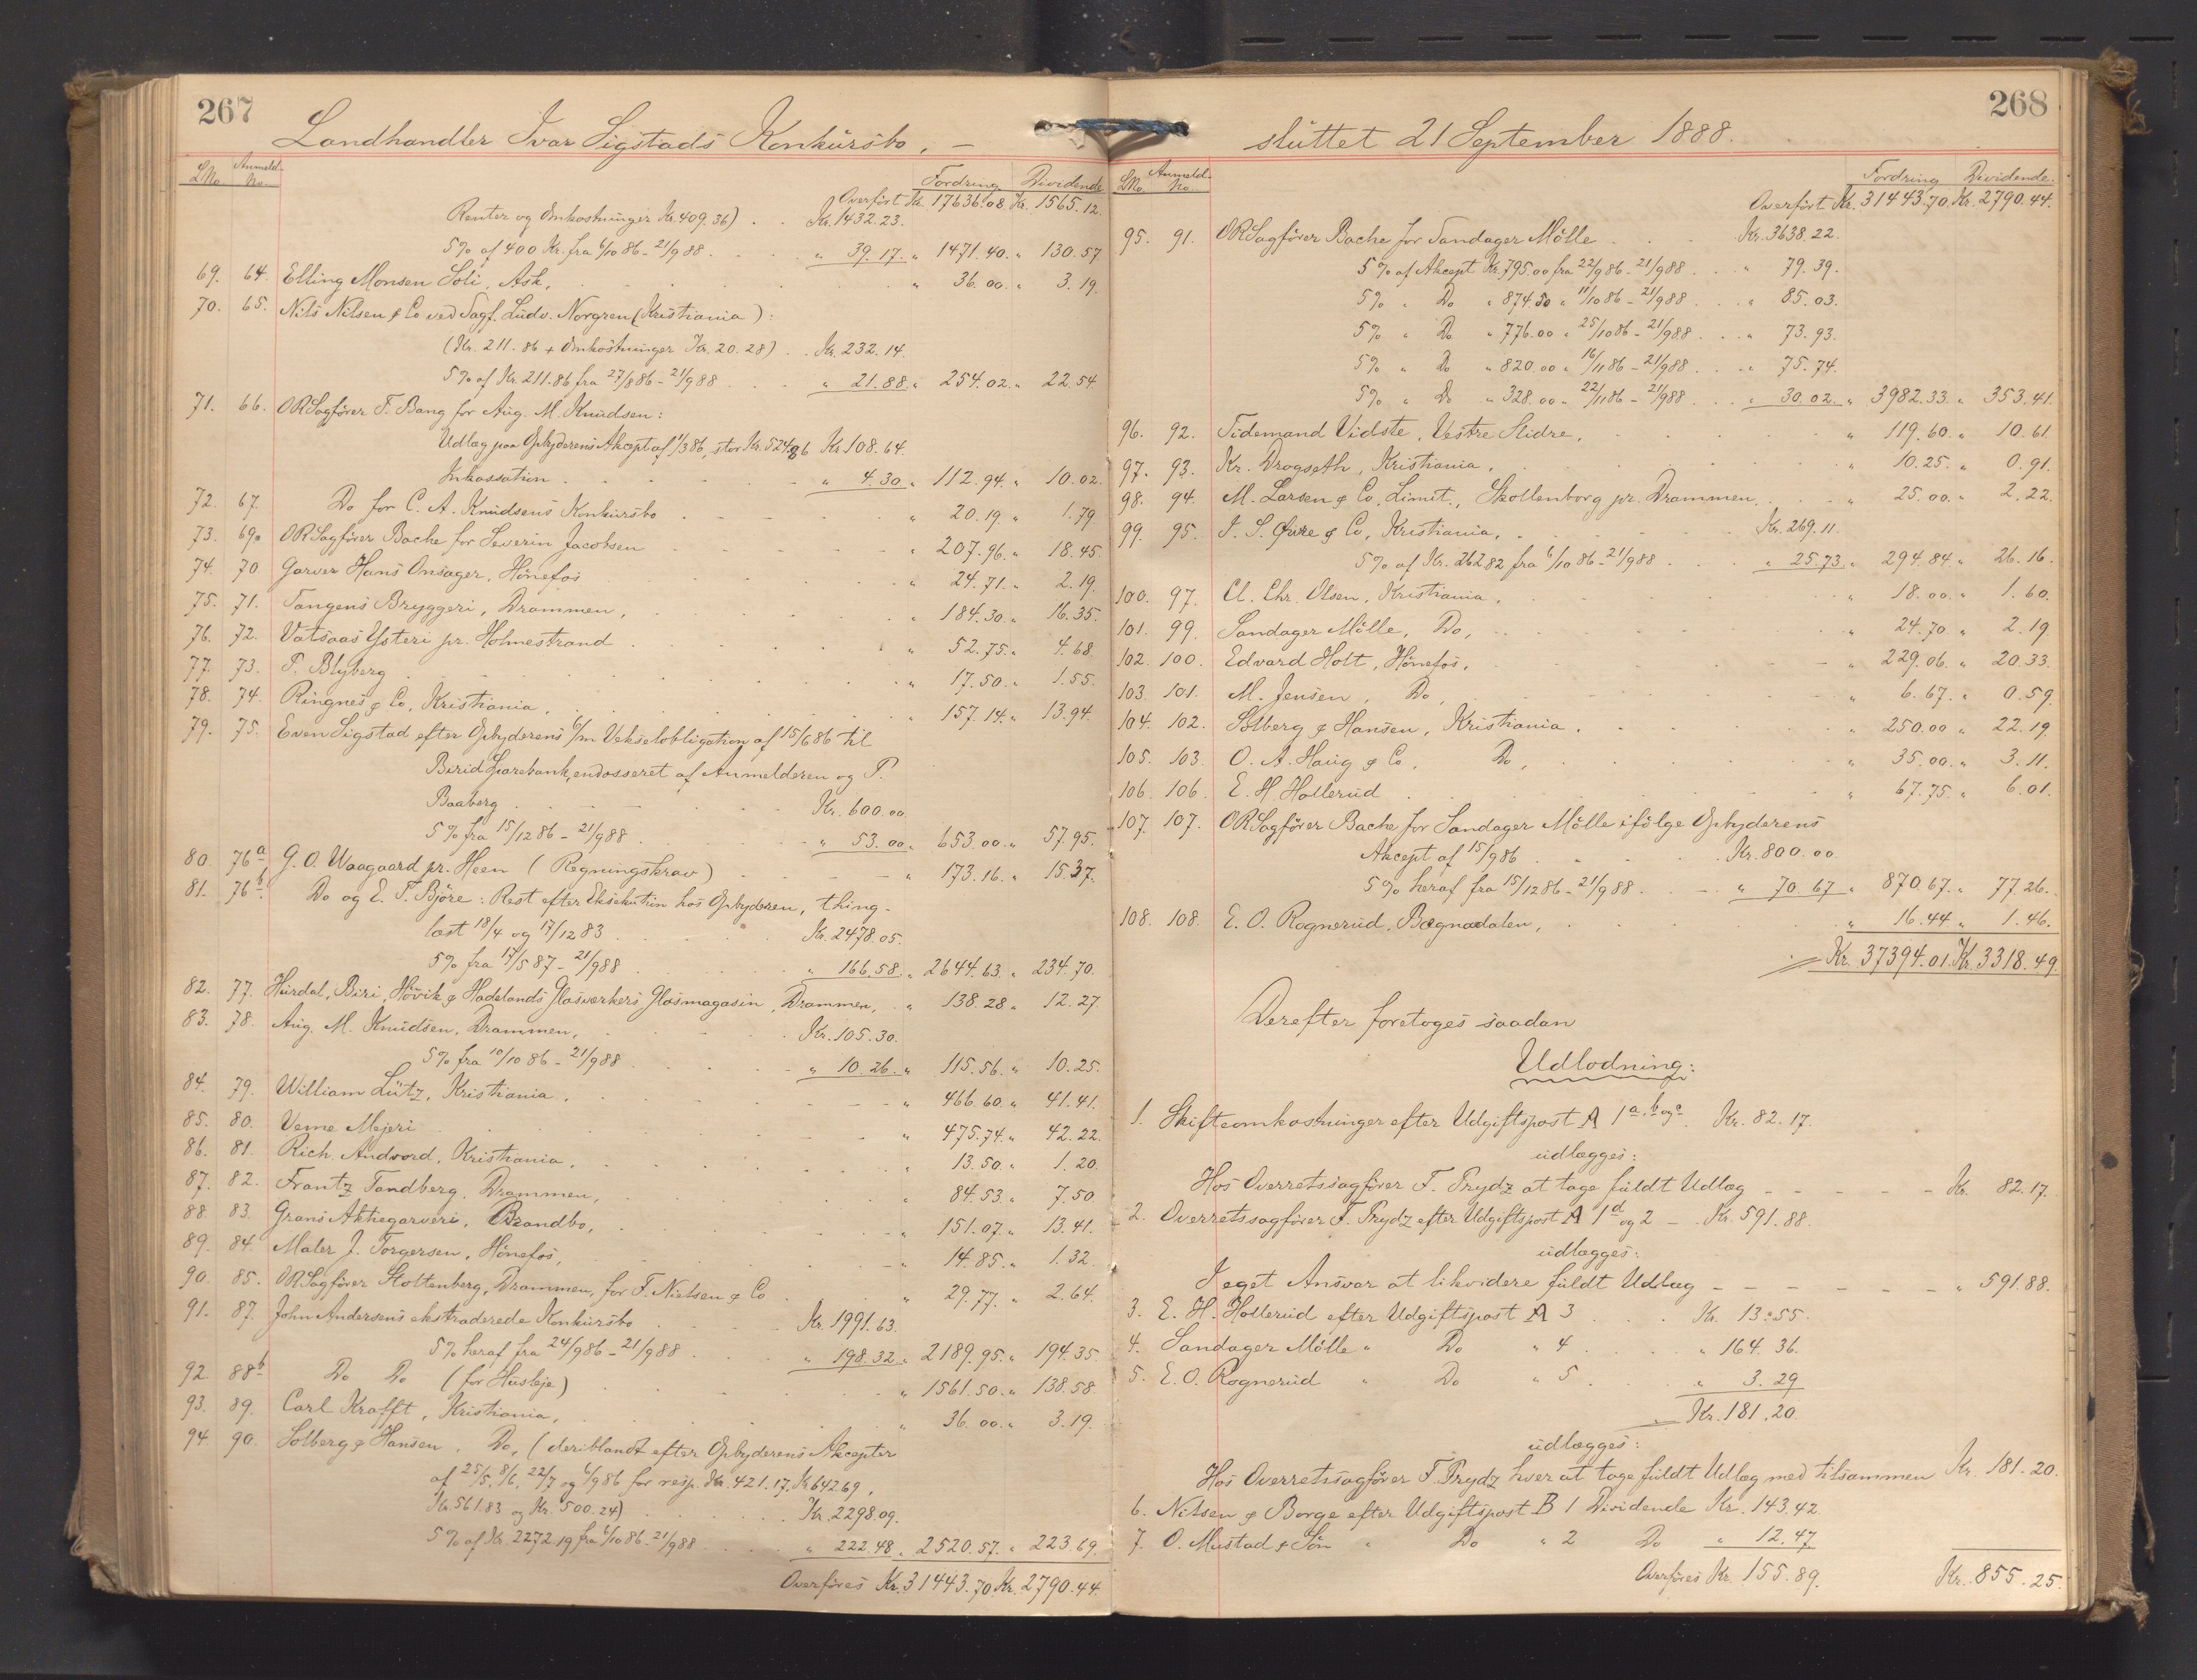 267
Landhandler Ivar Sigstads Konkürsbo. –
LNo Anmeld. No. Fordring Dividende
Overført Kr. 17636.08. Kr. 1565.12.
Renter og Omkostninger Kr. 409.36) . . Kr. 1432.23.
5% af 400 Kr. fra 6/10 86 - 21/9 88 . . . „ 39.17. „ 1471.40. „ 130.57
69. 64. Elling Monsen Soli, Ask, . . . „ 36.00. „ 3.19.
70. 65. Nils Nilsen & Co ved Sagf. Ludv. Norgren (Kristiania):
(Kr. 211.86 + Omkostninger Kr. 20.28) . . Kr. 232.14.
5% af Kr. 211.86 fra 27/8 86 - 21/9 88 . . . „ 21.88. „ 254.02. „ 22.54.
71. 66. ORSagfører F. Bang for Aug. M. Knudsen:
Udlæg paa Opbyderens Akcept af 1/3 86, stor Kr. 524.86 Kr. 108.64.
Inkassation . . . „ 4.30. „ 112.94. „ 10.02.
72. 67. Do for C. A. Knudsens Konkursbo . . . „ 20.19. „ 1.79
73. 69a ORSagfører Bache for Severin Jacobsen . . . „ 207.96. „ 18.45.
74. 70. Garver Hans Onsager, Hönefos . . . „ 24.71. „ 2.19.
75. 71. Tangens Bryggeri, Drammen, . . . „ 184.30. „ 16.35.
76. 72. Vatsaas Ysteri pr. Holmestrand . . . „ 52.75. „ 4.68.
77. 73. P. Blyberg . . . „ 17.50. „ 1.55.
78. 74. Ringnes & Co, Kristiania, . . . „ 157.14. „ 13.94.
79. 75. Even Sigstad efter Opbyderens 6/m Vekselobligation af 15/6 86 til
Birid Sparebank, endosseret af Anmelderen og P.
Baaberg . . . Kr. 600.00.
5% fra 15/12 86 - 21/9 88 . . . „ 53.00. „ 653.00. „ 57.95.
80. 76a G. O. Waagaard pr. Heen (Regningskrav) . . . „ 173.16. „ 15.37.
81. 76b. Do og E. T. Björe: Rest efter Eksekution hos Opbyderen, thing-
læst 18/4 og 17/12 83 . . . Kr. 2478.05.
5% fra 17/5 87 - 21/9 88 . . . „ 166.58. „ 2644.63. „ 234.70.
82. 77. Hurdal, Biri, Hövik & Hadelands Glasværkers Glasmagasin, Drammen, . . „ 138.28. „ 12.27.
83. 78. Aug. M. Knudsen, Drammen, . . . Kr. 105.30.
5% fra 10/10 86 - 21/9 88 . . . „ 10.26. „ 115.56. „ 10.25.
84. 79. William Lütz, Kristiania, . . . „ 466.60. „ 41.41.
85. 80. Veme Mejeri . . . „ 475.74. „ 42.22.
86. 81. Rich. Andvord, Kristiania, . . . „ 13.50. „ 1.20.
87. 82. Frantz Tandberg, Drammen, . . . „ 84.53. „ 7.50
88. 83. Grans Aktiegarveri, Brandbo, . . . „ 151.07. „ 13.41.
89. 84. Maler J. Torgersen, Hönefos, . . . „ 14.85. „ 1.32.
90. 85. ORSagfører Stoltenberg, Drammen, for F. Nielsen & Co . . „ 29.77. „ 2.64.
91. 87. John Andersens ekstraderede Konkursbo . . . Kr. 1991.63.
5% heraf fra 24/9 86 - 21/9 88 . . . „ 198.32. „ 2189.95. „ 194.35.
92. 88b Do Do (for Husleje) . . . „ 1561.50. „ 138.58.
93. 89. Carl Krafft, Kristiania, . . . „ 36.00. „ 3.19.
94. 90. Solberg & Hansen, Do, (deriblandt efter Opbyderens Akcepter
af 25/5, 8/6, 22/7 og 6/9 86 for resp. Kr. 421.17, Kr. 642.69,
Kr. 561.83 og Kr. 500.24) . . . Kr. 2298.09.
5% af Kr. 2272.19 fra 6/10 86 - 21/9 88 . . . „ 222.48. „ 2520.57. „ 223.69.
Overføres Kr. 31443.70 Kr. 2790.44
268
sluttet 21 September 1888.
LNo. Anmeld. No. Fordring Dividende.
Overført Kr. 31443.70. Kr. 2790.44.
95. 91. ORSagfører Bache for Sandager Mölle . . . Kr. 3638.22.
5% af Akcept Kr. 795.00 fra 22/9 86 - 21/9 88 . . . „ 79.39.
5% „ Do „ 874.50 „ 11/10 86 - 21/9 88 . . . „ 85.03.
5% „ Do „ 776.00 „ 25/10 86 - 21/9 88 . . . „ 73.93.
5% „ Do „ 820.00 „ 16/11 86 - 21/9 88 . . . „ 75.74.
5% „ Do „ 328.00 „ 22/11 86 - 21/9 88 . . . „ 30.02. „ 3982.33. „ 353.41.
96. 92. Tidemand Vidste, Vestre Slidre, . . . „ 119.60. „ 10.61.
97. 93. Kr. Drogseth, Kristiania, . . . „ 10.25. „ 0.91.
98. 94. M. Larsen & Co, Limit., Skollenborg pr. Drammen, . . . „ 25.00. „ 2.22.
99. 95. I. S. Øvre & Co, Kristiania, . . . Kr. 269.11.
5% af Kr. 262.82 fra 6/10 86 - 21/9 88 . . . „ 25.73. „ 294.84. „ 26.16.
100. 97. Cl. Chr. Olsen, Kristiania, . . . „ 18.00. „ 1.60.
101. 99. Sandager Mölle, Do, . . . „ 24.70 „ 2.19
102. 100. Edvard Holt, Hönefos, . . . „ 229.06. „ 20.33.
103. 101. M. Jensen, Do, . . . „ 6.67. „ 0.59.
104. 102. Solberg & Hansen, Kristiania . . . „ 250.00 „ 22.19.
105. 103. O. A. Haug & Co, Do, . . . „ 35.00. „ 3.11.
106. 106. E. H. Hollerud . . . „ 67.75. „ 6.01.
107. 107. ORSagfører Bache for Sandager Mölle ifølge Opbyderens
Akcept af 15/9 86 . . . Kr. 800.00.
5% heraf fra 15/12 86 - 21/9 88 . . . „ 70.67 „ 870.67. „ 77.26.
108. 108. E. O. Rognerud, Bægnadalen, . . . „ 16.44 „ 1.46.
Kr. 37394.01 Kr. 3318.49.
Derefter foretoges saadan
Udlodning:
1. Skifteomkostninger efter Udgiftspost A 1 a, b og c. Kr. 82.17.
udlægges:
Hos Overretssagfører F. Prydz at tage fuldt Udlæg – – – Kr. 82.17.
2. Overretssagfører F. Prydz efter Udgiftspost A 1d og 2 – Kr. 591.88.
udlægges:
I eget Ansvar at likvidere fuldt Udlæg – – – „ 591.88.
3. E. H. Hollerud efter Udgiftspost A 3 . . . Kr. 13.55.
4. Sandager Mölle „ Do „ 4 . . . „ 164.36.
5. E. O. Rognerud „ Do „ 5 . . . „ 3.29
Kr. 181.20.
udlægges:
Hos Overretssagfører F. Prydz hver at tage fuldt Udlæg med tilsammen Kr. 181.20.
6. Nilsen & Borge efter Udgiftspost B 1 Dividende Kr. 143.42.
7. O. Mustad & Søn „ Do „ 2 Do „ 12.47
Overføres Kr. 155.89. Kr. 855.25.